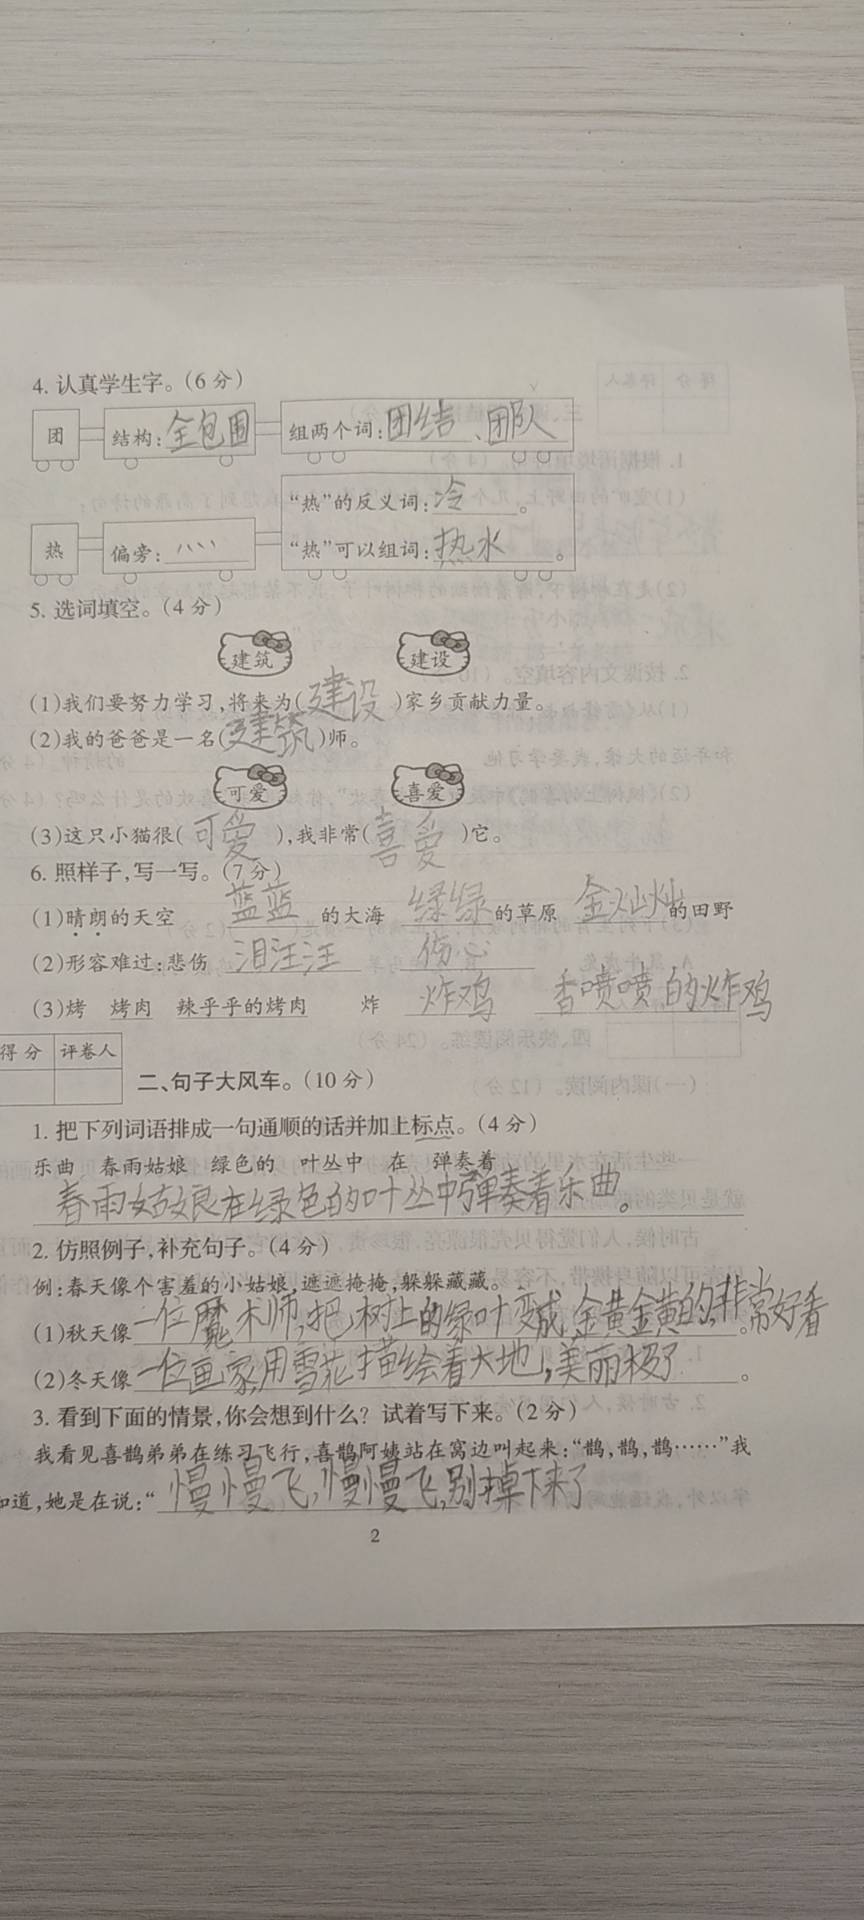 4. 认真学生字。(6 分)
团 结构:全包围 组两个词:团结、团队
“热”的反义词:冷。
热 偏旁:灬 “热”可以组词:热水。
5. 选词填空。(4 分)
建筑 建设
(1)我们要努力学习,将来为(建设)家乡贡献力量。
(2)我的爸爸是一名(建筑)师。
可爱 喜爱
(3)这只小猫很(可爱),我非常(喜爱)它。
6. 照样子,写一写。(7 分)
(1)晴朗的天空 蓝蓝的大海 绿绿的草原 金灿灿的田野
(2)形容难过:悲伤 泪汪汪 伤心
(3)烤 烤肉 辣乎乎的烤肉 炸 炸鸡 香喷喷的炸鸡
得分 评卷人
二、句子大风车。(10 分)
1. 把下列词语排成一句通顺的话并加上标点。(4 分)
乐曲 春雨姑娘 绿色的 叶丛中 在 弹奏着
春雨姑娘在绿色的叶丛中弹奏着乐曲。
2. 仿照例子,补充句子。(4 分)
例:春天像个害羞的小姑娘,遮遮掩掩,躲躲藏藏。
(1)秋天像一位魔术师,把树上的绿叶变成金黄金黄的,非常好看。
(2)冬天像一位画家,用雪花描绘着大地,美丽极了。
3. 看到下面的情景,你会想到什么? 试着写下来。(2 分)
我看见喜鹊弟弟在练习飞行,喜鹊阿姨站在窝边叫起来:“鹊,鹊,鹊……”我
知道,她是在说:“慢慢飞,慢慢飞,别掉下来了
2